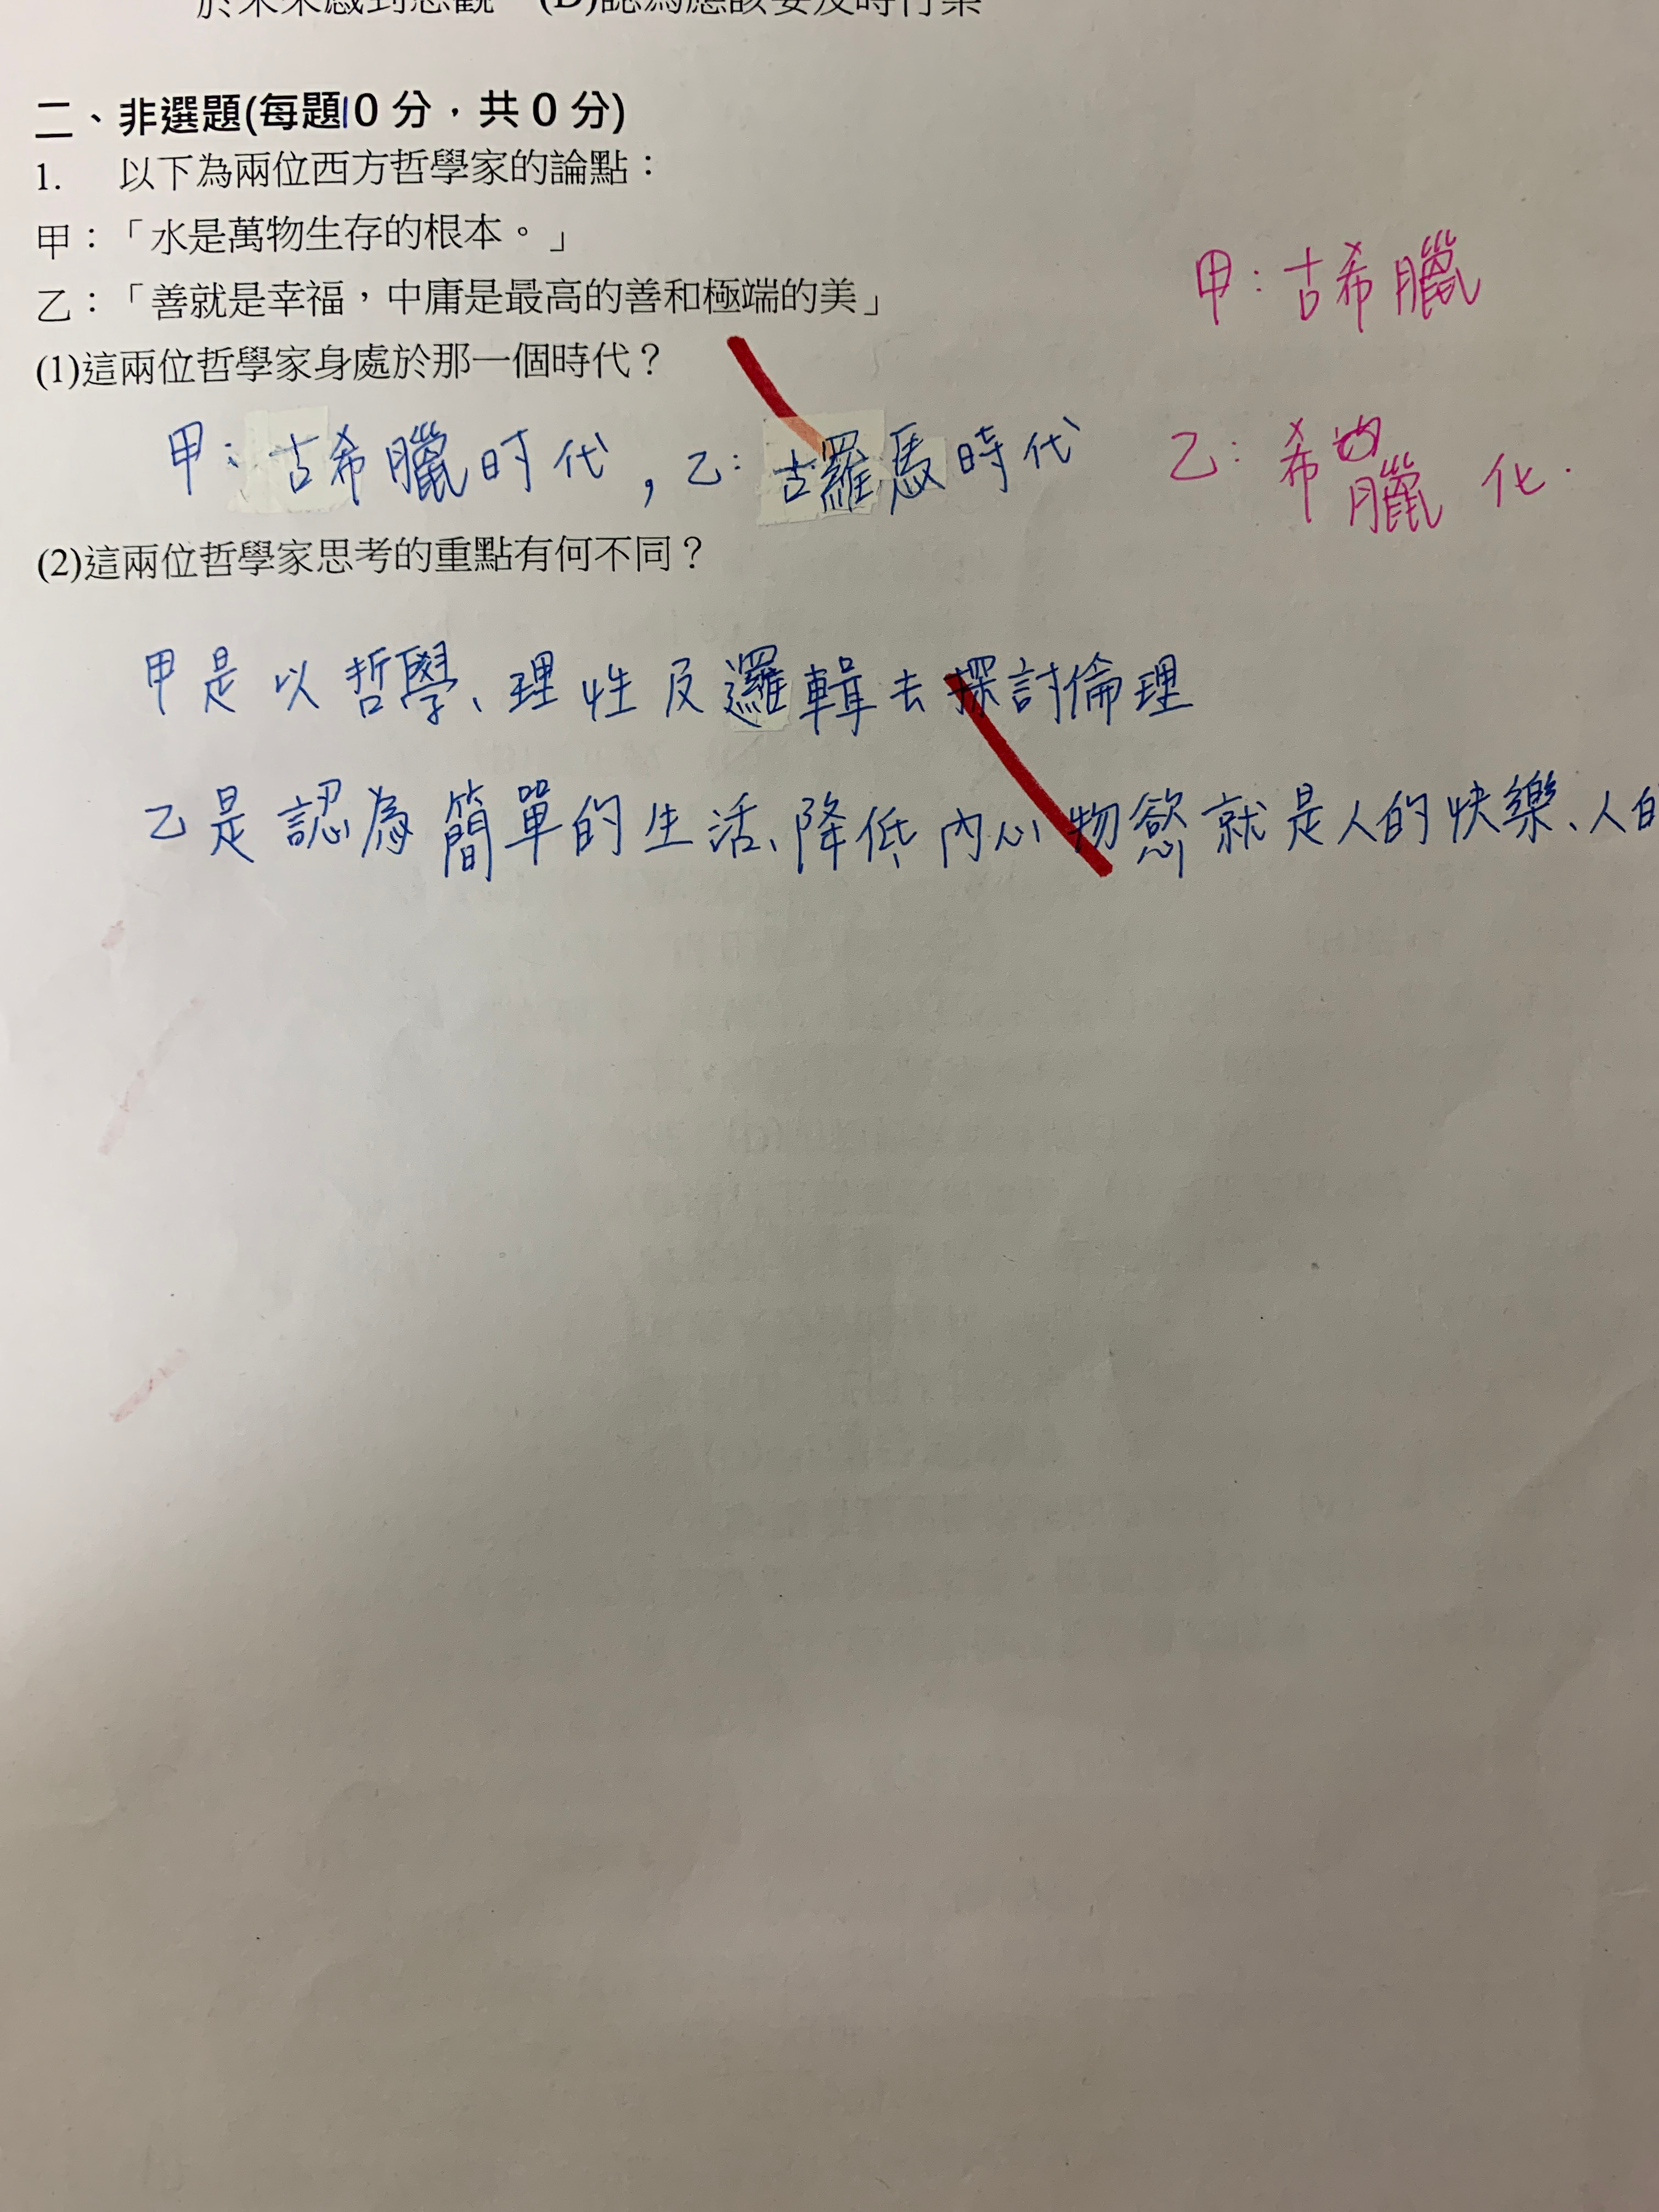 於未來感到悲觀 (D)認為應該要及時行樂
二、非選題(每題10分，共0分)
1. 以下為兩位西方哲學家的論點：
甲：「水是萬物生存的根本。」
乙：「善就是幸福，中庸是最高的善和極端的美」
甲：古希臘
(1)這兩位哲學家身處於那一個時代？
甲：古希臘時代，乙：古羅馬時代
乙：希臘化.
(2)這兩位哲學家思考的重點有何不同？
甲是以哲學、理性及邏輯去探討倫理
乙是認為簡單的生活、降低內心物慾就是人的快樂、人的